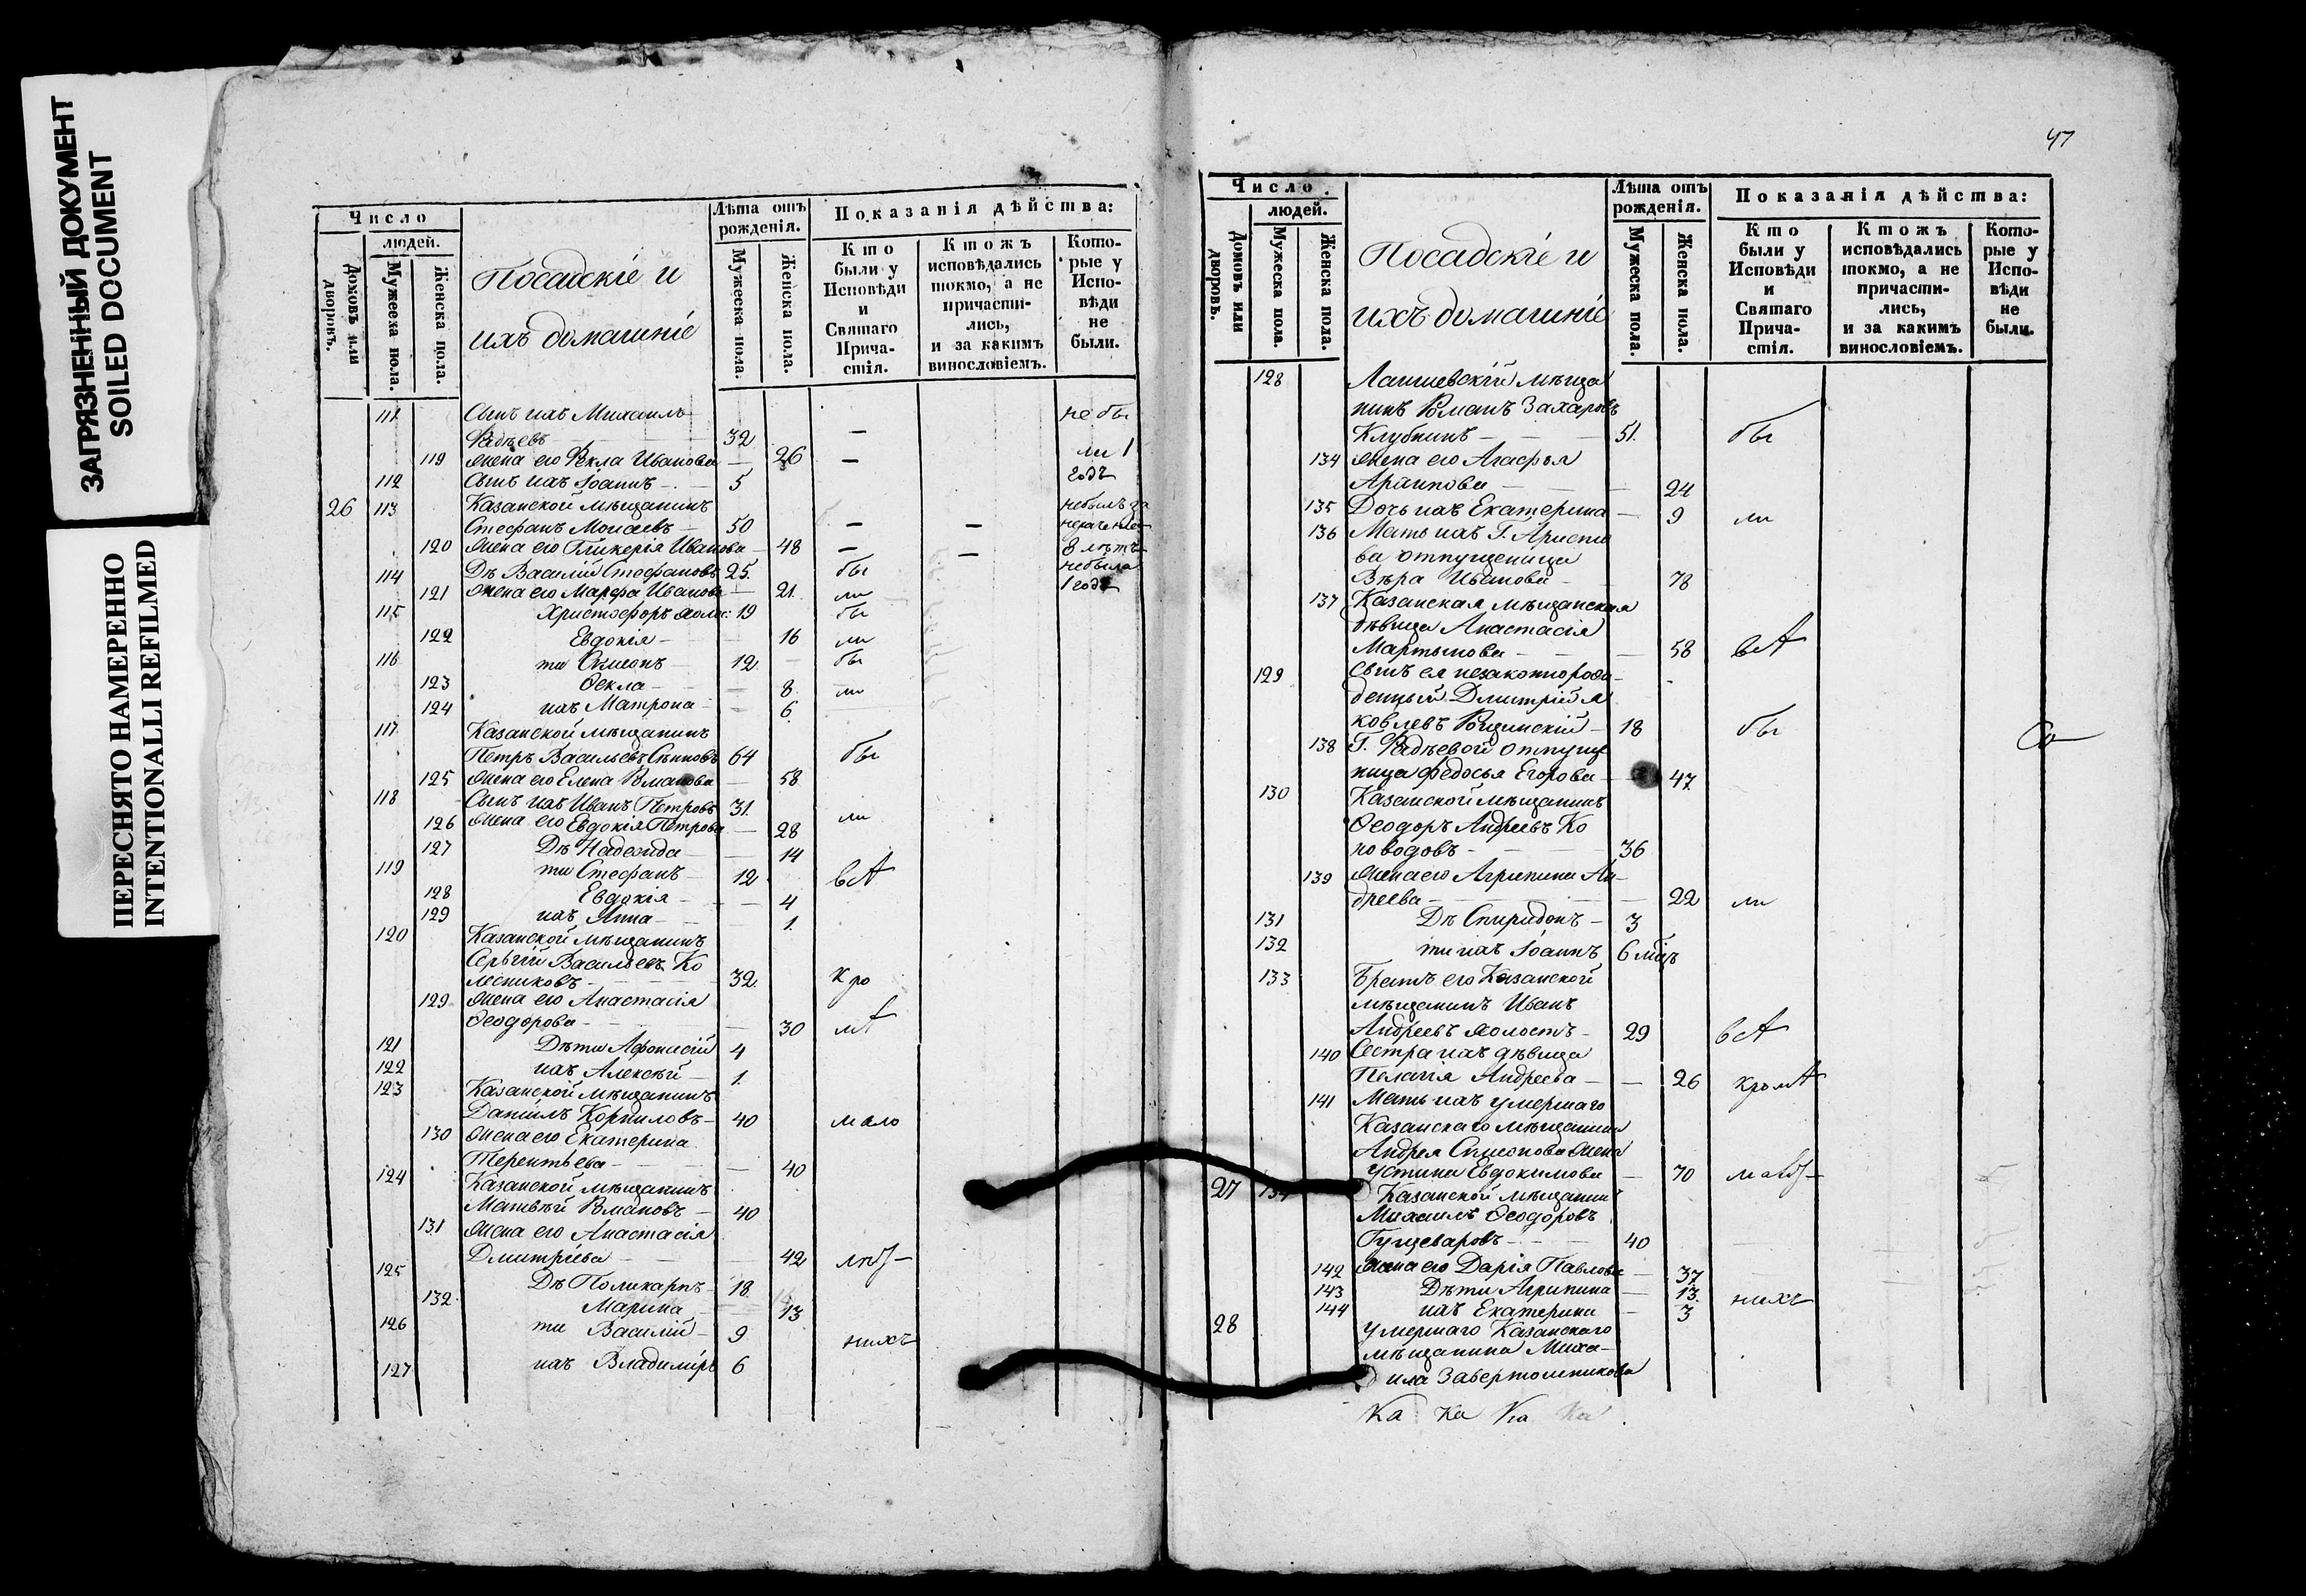 ЗАГРЯЗНЕННЫЙ ДОКУМЕНТ
SOILED DOCUMENT
ПЕРЕСНЯТО НАМЕРЕННО
INTENTIONALLI REFILMED
Число
людей.
Домовъ или дворовъ.
Мужеска пола.
Женска пола.
Посадскіе и
ихъ домашніе
Лѣта отъ рожденія.
Мужеска пола.
Женска пола.
Показанія дѣйства:
Кто были у Исповѣди и Святаго Прича-стія.
Ктожъ исповѣдались токмо, а не причасти-лись, и за какимъ винословіемъ.
Кото-рые у Испо-вѣди не были.
111 Сынъ ихъ Михаилъ не бы
32 —
119 жена его Ѳекла Иванова — 26 — ли 1
112 Сынъ ихъ Іоаннъ — 5 годъ
26 113 Казанской мѣщанинъ
Стефанъ — 50 — —
120 жена его Гликерія Иванова — 48 — — 8 лѣтъ
114 Дѣ Василій Стефановъ 25. бы не была
121 жена его Марфа Иванова — 21. ли 1 годъ
115 Христофоръ холос: 19 бы
122 Евдокія — 16 ли
116 ти Симеонъ 12 — бы
123 Ѳекла — 8 ли
124 ихъ Матрона — 6
117 Казанской мѣщанинъ
Петръ Васильевъ 64 бы
125 жена его Елена Романова — 58
118 Сынъ ихъ Иванъ Петровъ 31.
126 жена его Евдокія Петрова — 28 ли
127 Дѣ Надежда — 14
119 ти Стефанъ — 12
128 Евдокія — 4
129 ихъ Анна — 1.
120 Казанской мѣщанинъ
Сергій Васильевъ Ко
лесниковъ — 32. кро
129 жена его Анастасія
Ѳеодорова — 30
121 Дѣти Афонасій 4
122 ихъ Алексѣй — 1.
123 Казанской мѣщанинъ
Даніилъ Корниловъ — 40 мало
130 жена его Екатерина
Терентьева — 40
124 Казанской мѣщанинъ
Матвѣй Романовъ — 40
131 жена его Анастасія
Дмитріева — 42
125 Дѣ Поликарпъ — 18
132 Марина — 13
126 ти Василій — 9 нихъ
127 ихъ Владиміръ 6
47
Число
людей.
Домовъ или дворовъ.
Мужеска пола.
Женска пола.
Посадскіе и
ихъ домашніе
Лѣта отъ рожденія.
Мужеска пола.
Женска пола.
Показанія дѣйства:
Кто были у Исповѣди и Святаго Прича-стія.
Ктожъ исповѣдались токмо, а не причасти-лись, и за какимъ винословіемъ.
Кото-рые у Испо-вѣди не были.
128 Лаишевскій мѣща
нинъ Романъ Захаровъ
Клубнинъ — 51. бы
134 жена его Агафья
Архипова — 24
135 Дочь ихъ Екатерина — 9 ли
136 Мать ихъ Г. Аристо
ва отпущеница
Вѣра Иванова — 78
137 Казанская мѣщанская
дѣвица Анастасія
Мартынова — 58
129 Сынъ ея незаконнорож
денный Дмитрій Я
ковлевъ — 18 бы
138 Г. отпуще
ница Федосья Егорова — 47
130 Казанской мѣщанинъ
Ѳеодоръ Андреевъ Ко
новодовъ — 36
139 жена его Агрипина Ан
дреева — 22 ли
131 Дѣ Спиридонъ — 3
132 ти ихъ Іоаннъ 6 мѣц
133 Братъ его Казанской
мѣщанинъ Иванъ
Андреевъ холостъ — 29
140 Сестра ихъ дѣвица
Пелагія Андреева — — 26
141 Мать ихъ умершаго
Казанскаго мѣщанина
Андрея Симеонова жена
Устинья Евдокимова — 70
27 134 Казанской мѣщанинъ
Михаилъ Ѳеодоровъ
40
142 жена его Дарія Павлова — 37
143 Дѣти Агрипина — 13
144 ихъ Екатерина — 3 нихъ
28 умершаго Казанскаго
мѣщанина Миха-
ила
Ка Ка Ка Ка